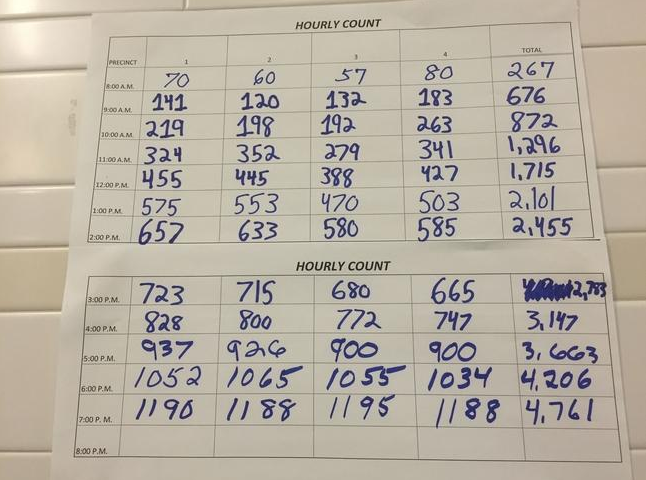 HOURLY COUNT
PRECINCT 1 2 3 4 TOTAL
8:00 A.M. 70 60 57 80 267
9:00 A.M. 141 120 132 183 676
10:00 A.M. 219 198 192 263 872
11:00 A.M. 324 352 279 341 1,296
12:00 P.M. 455 445 388 427 1,715
1:00 P.M. 575 553 470 503 2,101
2:00 P.M. 657 633 580 585 2,455
HOURLY COUNT
3:00 P.M. 723 715 680 665 2,783
4:00 P.M. 828 800 772 747 3,147
5:00 P.M. 937 926 900 900 3,663
6:00 P.M. 1052 1065 1055 1034 4,206
7:00 P.M. 1190 1188 1195 1188 4,761
8:00 P.M.